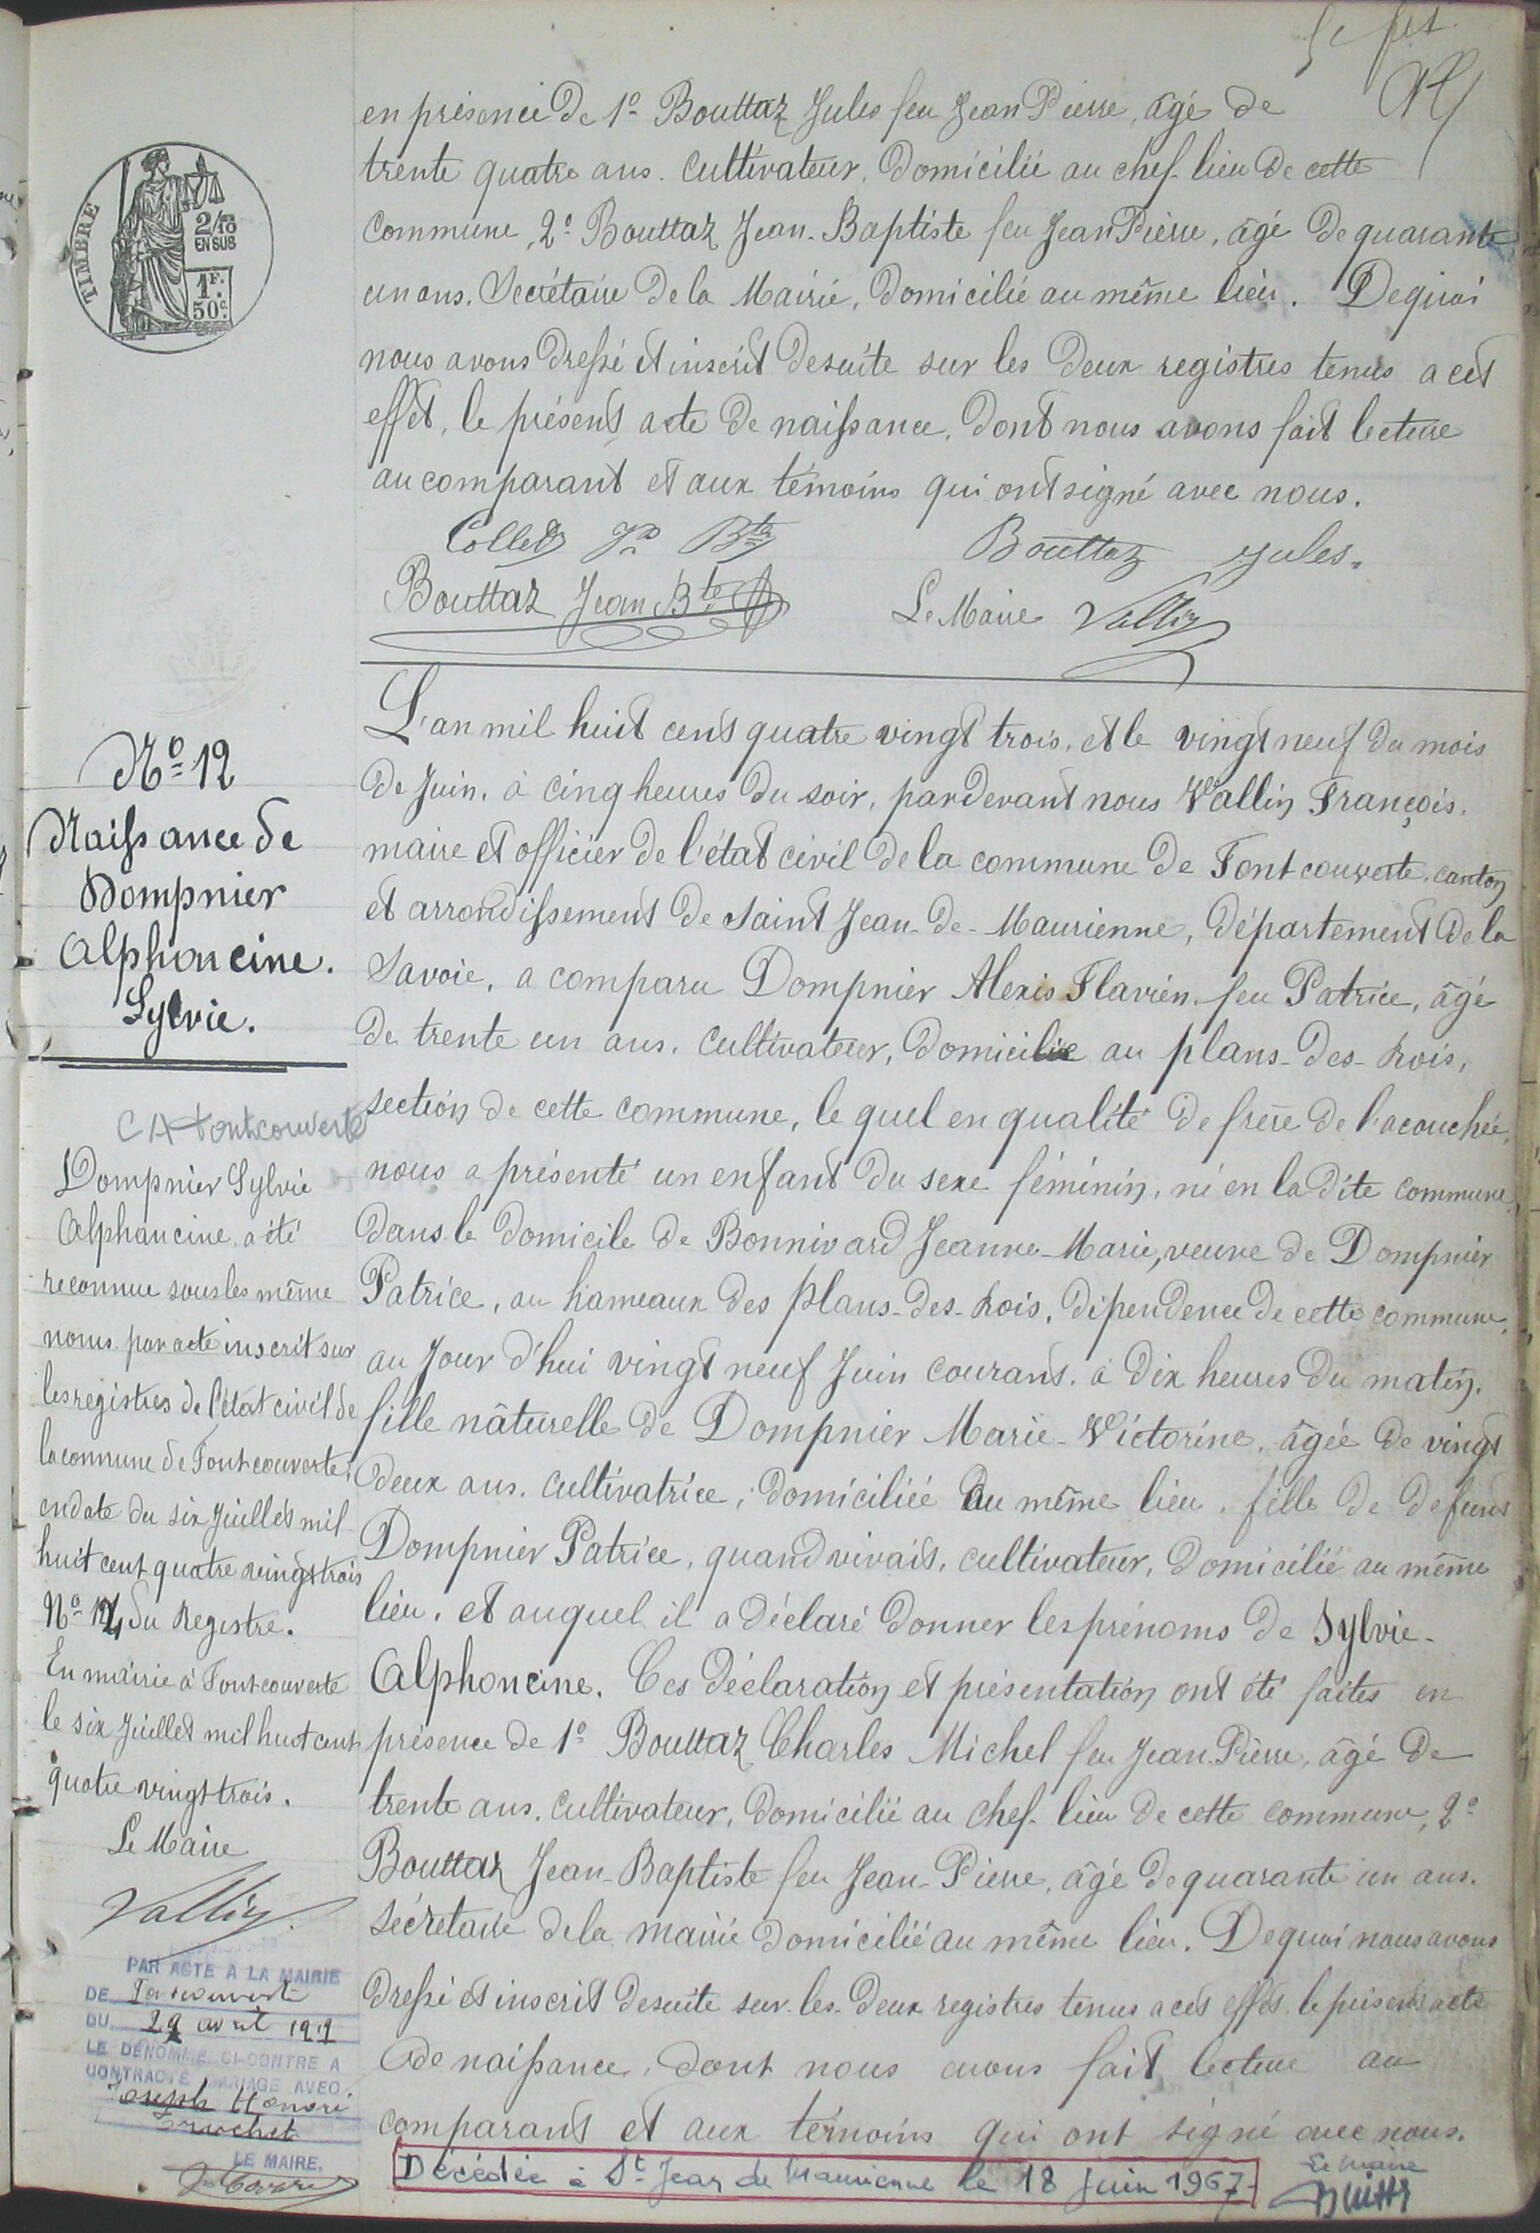 5e fet
en présence de 1º Bouttaz Jules feu Jean Pierre, âgé de
trente quatre ans. cultivateur, domicilié au chef-lieu de cette
commune, 2º Bouttaz Jean-Baptiste feu Jean Pierre, âgé de quarante
un ans. Secrétaire de la Mairie, domicilié au même lieu. De quoi
nous avons dressé et inscrit desuite sur les deux registres tenus a cet
effet, le présent acte de naissance, dont nous avons fait lecture
au comparant et aux témoins qui ont signé avec nous.
Collet Jn Bte
Bouttaz Jules.
Bouttaz Jean Bte
Le Maire Vallin
TIMBRE
2/10
EN SUS
1F.
50c.
Nº 12
Naissance de
Dompnier
Alphoncine.
Sylvie.
L'an mil huit cent quatre vingt trois, et le vingt neuf du mois
de Juin, à cinq heures du soir, pardevant nous Vallin François,
maire et officier de l'état civil de la commune de Fontcouverte, canton
et arrondissement de Saint Jean-de-Maurienne, département de la
Savoie, a comparu Dompnier Alexis Flavien feu Patrice, âgé
de trente un ans, cultivateur, domicilié au plans-des-Rois,
section de cette commune, le quel en qualité de frère de l'acouchée,
nous a présenté un enfant du sexe féminin, né en la dite commune,
dans le domicile de Bonnivard Jeanne-Marie, veuve de Dompnier
Patrice, au hameaux des plans-des-Rois, dipendence de cette commune,
au Jour d'hui vingt neuf Juin courant, à dix heures du matin,
fille nâturelle de Dompnier Marie-Victorine, âgée de vingt
deux ans, cultivatrice, domiciliée au même lieu, fille de defunt
Dompnier Patrice, quand vivait, cultivateur, domicilié au même
lieu, et auquel il a déclaré donner les prénoms de Sylvie-
Alphoncine. Ces déclaration et présentation ont été faites en
présence de 1º Bouttaz Charles Michel feu Jean-Pierre, âgé de
trente ans, cultivateur, domicilié au chef-lieu de cette commune, 2º
Bouttaz Jean-Baptiste feu Jean-Pierre, âgé de quarante un ans.
sécretaire de la mairie domicilié au même lieu. De quoi nous avons
dressé et inscrit desuite sur les deux registres tenus a cet effet le présent acte
de naissance, dont nous avons fait lecture au
comparant et aux témoins qui ont signé avec nous.
CA Fontcouverte
Dompnier Sylvie
Alphoncine, a été
reconnue sous les même
noms par acte inscrit sur
les registres de l'état civil de
la commune de Fontcouverte,
en date du six Juillet mil
huit cent quatre vingt trois
Nº 14 du Registre.
En mairie à Fontcouverte
le six Juillet mil huit cent
quatre vingt trois.
Le Maire
Vallin
PAR ACTE A LA MAIRIE
DE Fontcouverte
DU 29 avril 1919
LE DÉNOMMÉ CI-CONTRE A
CONTRACTÉ MARIAGE AVEC
Joseph Honoré
Truchet
LE MAIRE,
Décédée à St Jean de Maurienne le 18 juin 1967
Le Maire